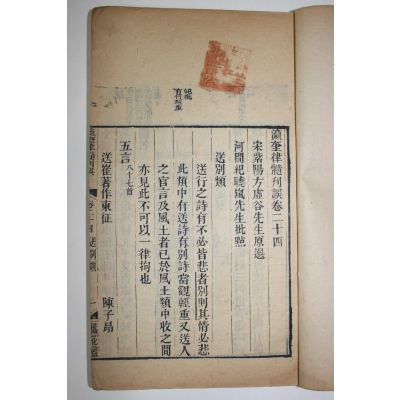 瀛奎律髓刊誤卷二十四
宋紫陽方虛谷先生原選
河間紀曉嵐先生批㸃
送別類
送行之詩有不必皆悲者別則其情必悲
此類中有送詩有別詩當觀輕重又送人
之官言及風土者已於風土類中收之間
亦見此不可以一律拘也
五言八十七首
送崔著作東征
陳子昻
瀛奎律髓刊誤
卷二十四
送別類
一